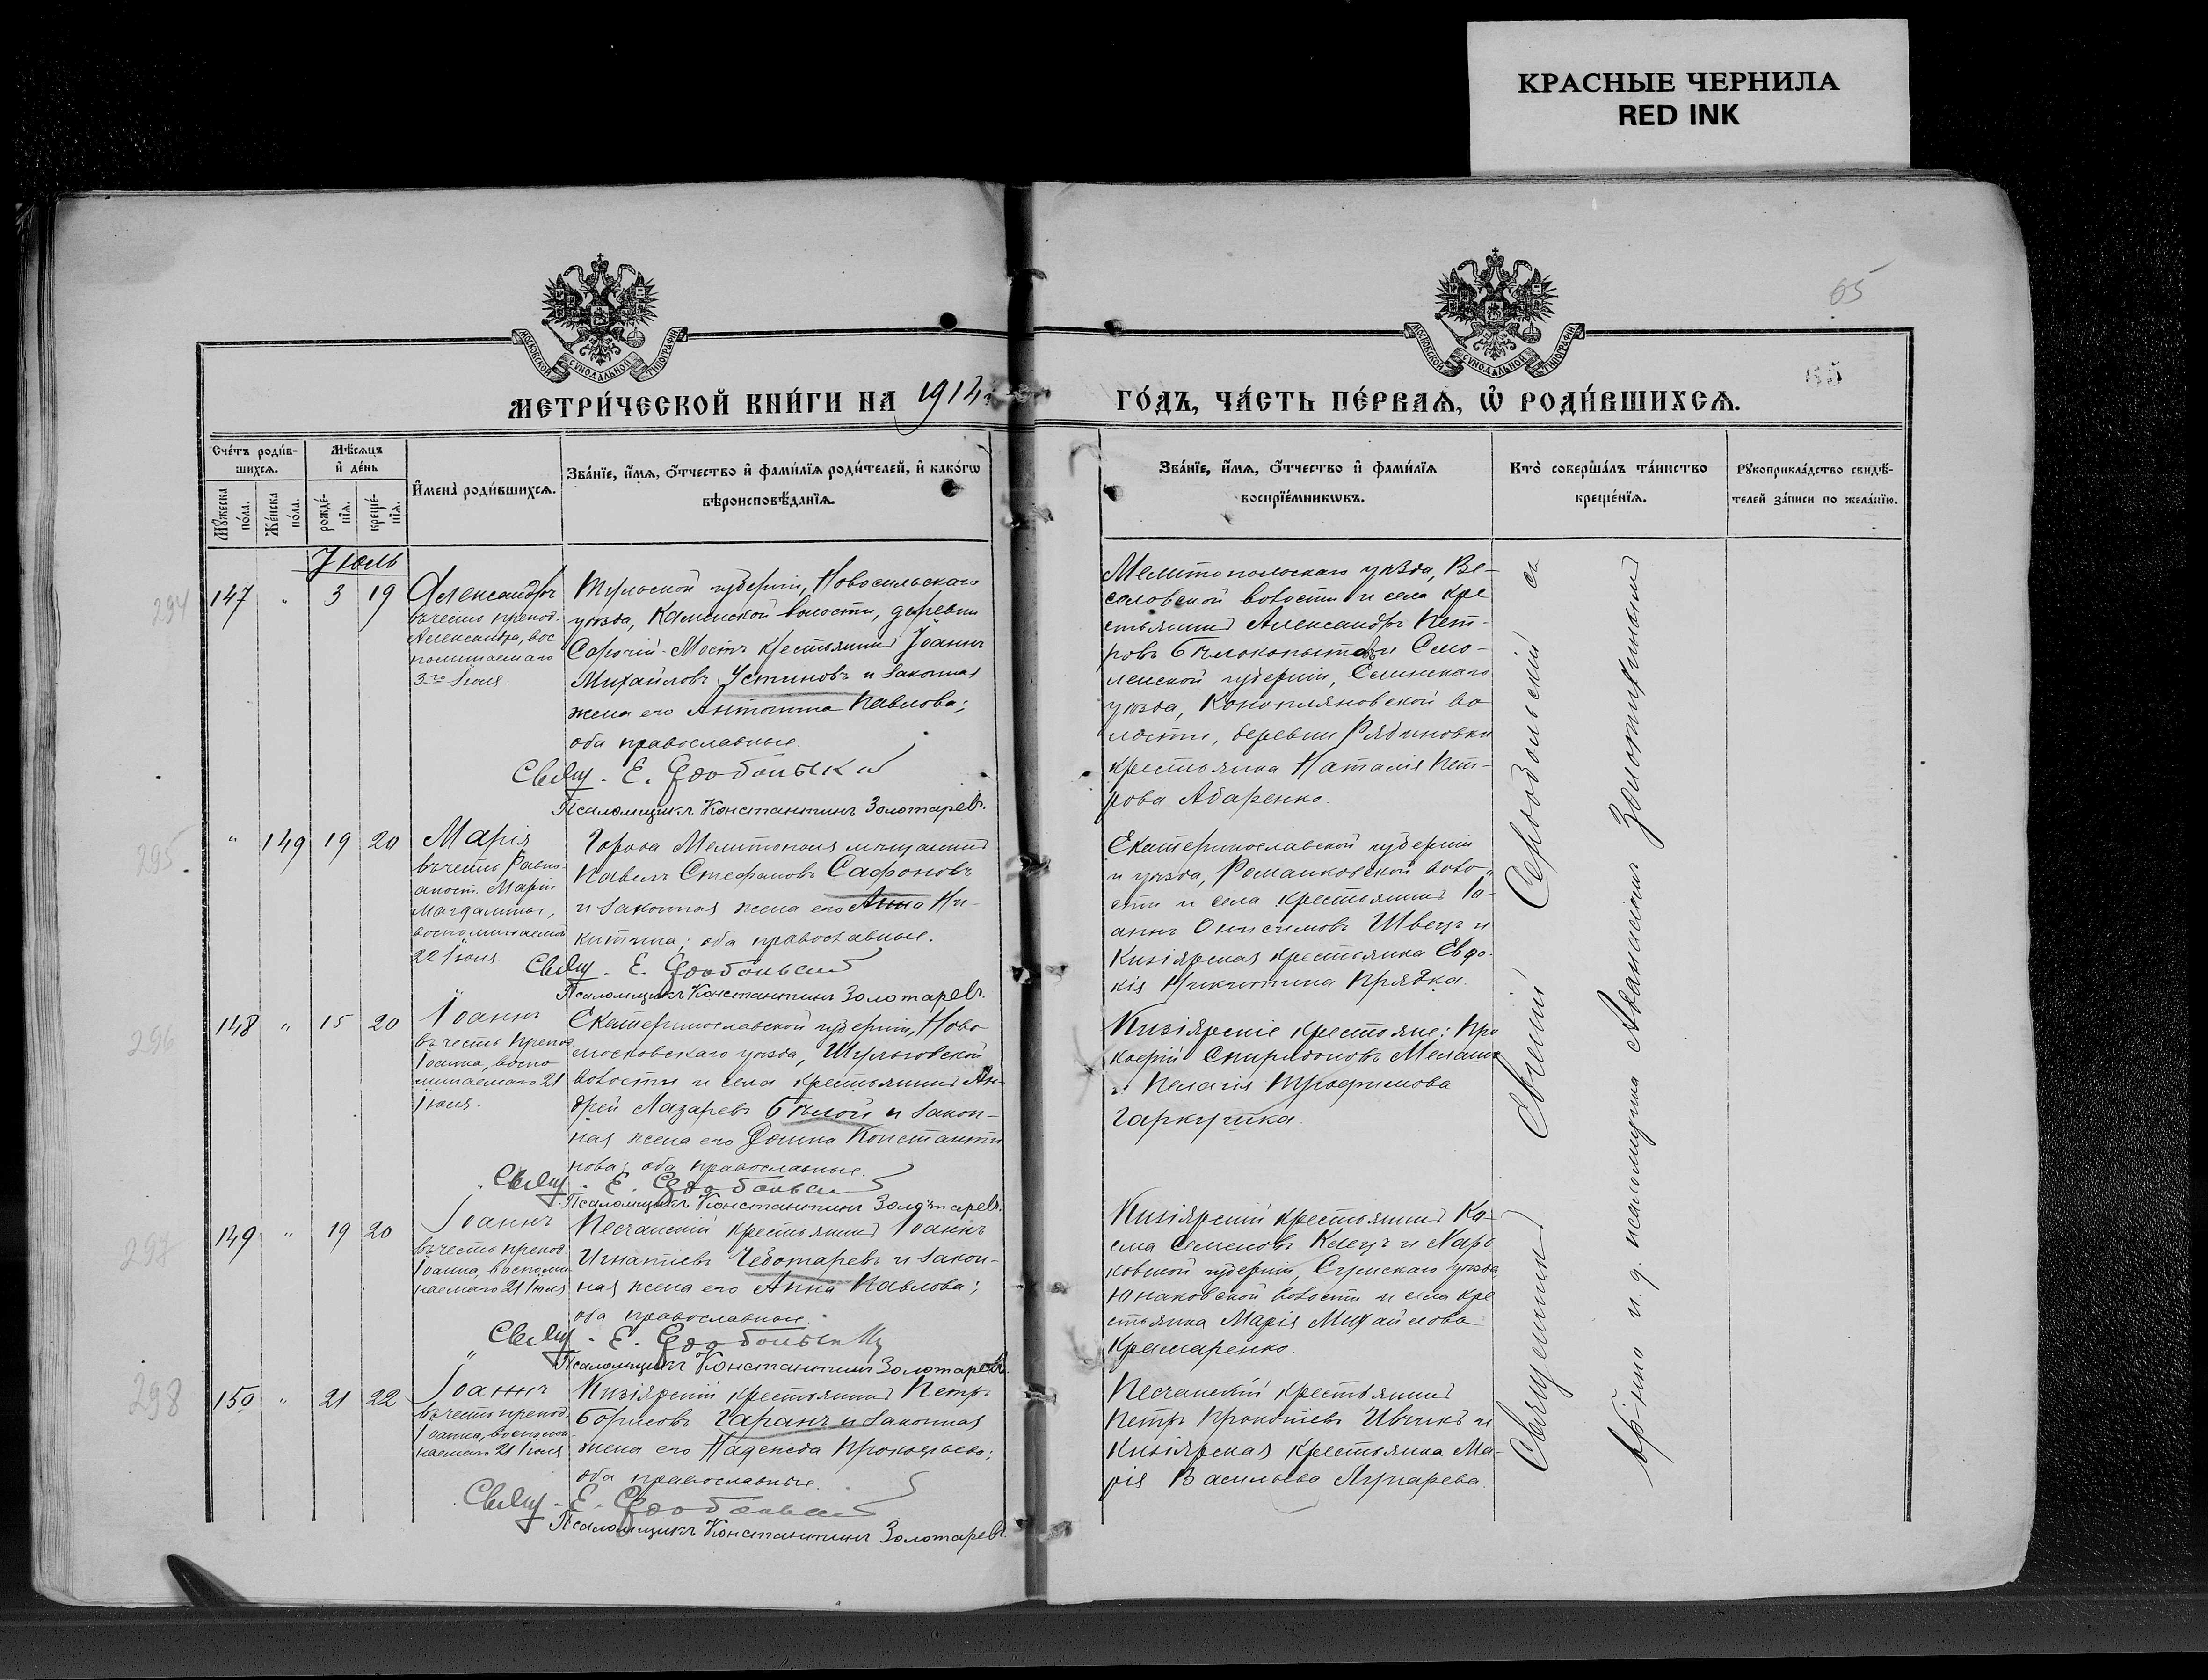 КРАСНЫЕ ЧЕРНИЛА
RED INK
65
65
МОСКОВСКОЙ СѴНОДАЛЬНОЙ ТИПОГРАФІИ
МОСКОВСКОЙ СѴНОДАЛЬНОЙ ТИПОГРАФІИ
МЕТРИ́ЧЕСКОЙ КНИ́ГИ НА 1914
ГО́ДЪ, ЧА́СТЬ ПЕ́РВАѦ, Ѡ҆ РОДИ́ВШИХСѦ.
Сче́тъ роди́в-
шихсѧ.
Мѣ́сѧцъ
и҆ де́нь
Мꙋ́жеска
по́ла.
Же́нска
по́ла.
рожде́-
нїѧ.
креще́-
нїѧ.
И҆мена̀ роди́вшихсѧ.
Зва́нїе, и҆́мѧ, ѻ҆́тчество и҆ фами́лїѧ роди́телей, и҆ како́гѡ
вѣроисповѣ́данїѧ.
Зва́нїе, и҆́мѧ, ѻ҆́тчество и҆ фами́лїѧ
воспрїе́мникѡвъ.
Кто̀ соверша́лъ та́инство
креще́нїѧ.
Рꙋкоприкла́дство свидѣ́-
телей за́писи по жела́нїю.
Іюль
294
147 " 3 19
Александръ
въ честь препод.
Александра, вос
поминаемаго
3го Іюля
Тульской губерніи, Новосильскаго
уѣзда, Каменской волости, деревни
Сорочій-Мостъ крестьянинъ Іоаннъ
Михайловъ Устиновъ и законная
жена его Антонина Павлова;
оба православные.
Свящ. Е. Сердобольскій
Псаломщикъ Константинъ Золотаревъ.
Мелитопольскаго уѣзда, Ве-
селовской волости и села кре
стьянинъ Александръ Пет-
ровъ Бѣлокопытовъ и Смо-
ленской губерніи, Ельнинскаго
уѣзда, Конопляновской во
лости, деревни Рябиновки
крестьянка Наталія Пет-
рова Абаренко.
295
" 149 19 20
Марія
въ честь Равно-
апост. Маріи
Магдалины,
воспоминаемой
22 Іюля.
Города Мелитополя мѣщанинъ
Павелъ Стефановъ Сафоновъ
и законная жена его Анна Ни-
китина; оба православные.
Свящ. Е. Сердобольскій
Псаломщикъ Константинъ Золотаревъ.
Екатеринославской губерніи
и уѣзда, Романковской воло-
сти и села крестьянинъ Іо-
аннъ Онисимовъ Швецъ и
Кизіярская крестьянка Евдо-
кія Никитина Прядка.
296
148 " 15 20
Іоаннъ
въ честь препод
Іоанна, воспо
минаемаго 21
Іюля.
Екатеринославской губерніи, Ново
московскаго уѣзда, Шульговской
волости и села крестьянинъ Ан-
дрей Лазаревъ Бѣлой и закон-
ная жена его Домна Константи
нова; оба православные.
Свящ. Е. Сердобольскій
Псаломщикъ Константинъ Золотаревъ.
Кизіярскіе крестьяне: Про
кофій Спиридоновъ
и Пелагія Трофимова
Гаркушка.
297
149 " 19 20
Іоаннъ
въ честь препод.
Іоанна, воспоми
наемаго 21 Іюля
Песчанскій крестьянинъ Іоаннъ
Игнатіевъ Чеботаревъ и закон-
ная жена его Анна Павлова;
оба православные.
Свящ. Е. Сердобольскій
Псаломщикъ Константинъ Золотаревъ.
Кизіярскій крестьянинъ Ко-
сма Семеновъ Клецъ и Харь
ковской губерніи, Сумскаго уѣзда,
Юнаковской волости и села кре
стьянка Марія Михайлова
Крамаренко.
298
150 " 21 22
Іоаннъ
въ честь препод.
Іоанна, воспоми-
наемаго 21 Іюля
Кизіярскій крестьянинъ Петръ
Борисовъ Гаранъ и законная
жена его Надежда Прокофьева;
оба православные.
Свящ. Е. Сердобольскій
Псаломщикъ Константинъ Золотаревъ.
Песчанскій крестьянинъ
Петръ Прокопіевъ Ивчикъ и
Кизіярская крестьянка Ма-
рія Васильева
Священникъ Евгеній Сердобольскій съ
вр-енно и. д. псаломщика Аѳанасіемъ